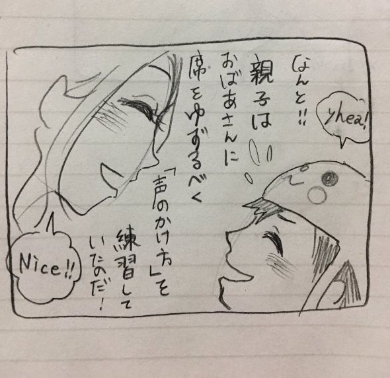 なんと!!
親子は
おばあさんに
席をゆずるべく
「声のかけ方」を
練習して
いたのだ!
yhea!
Nice!!